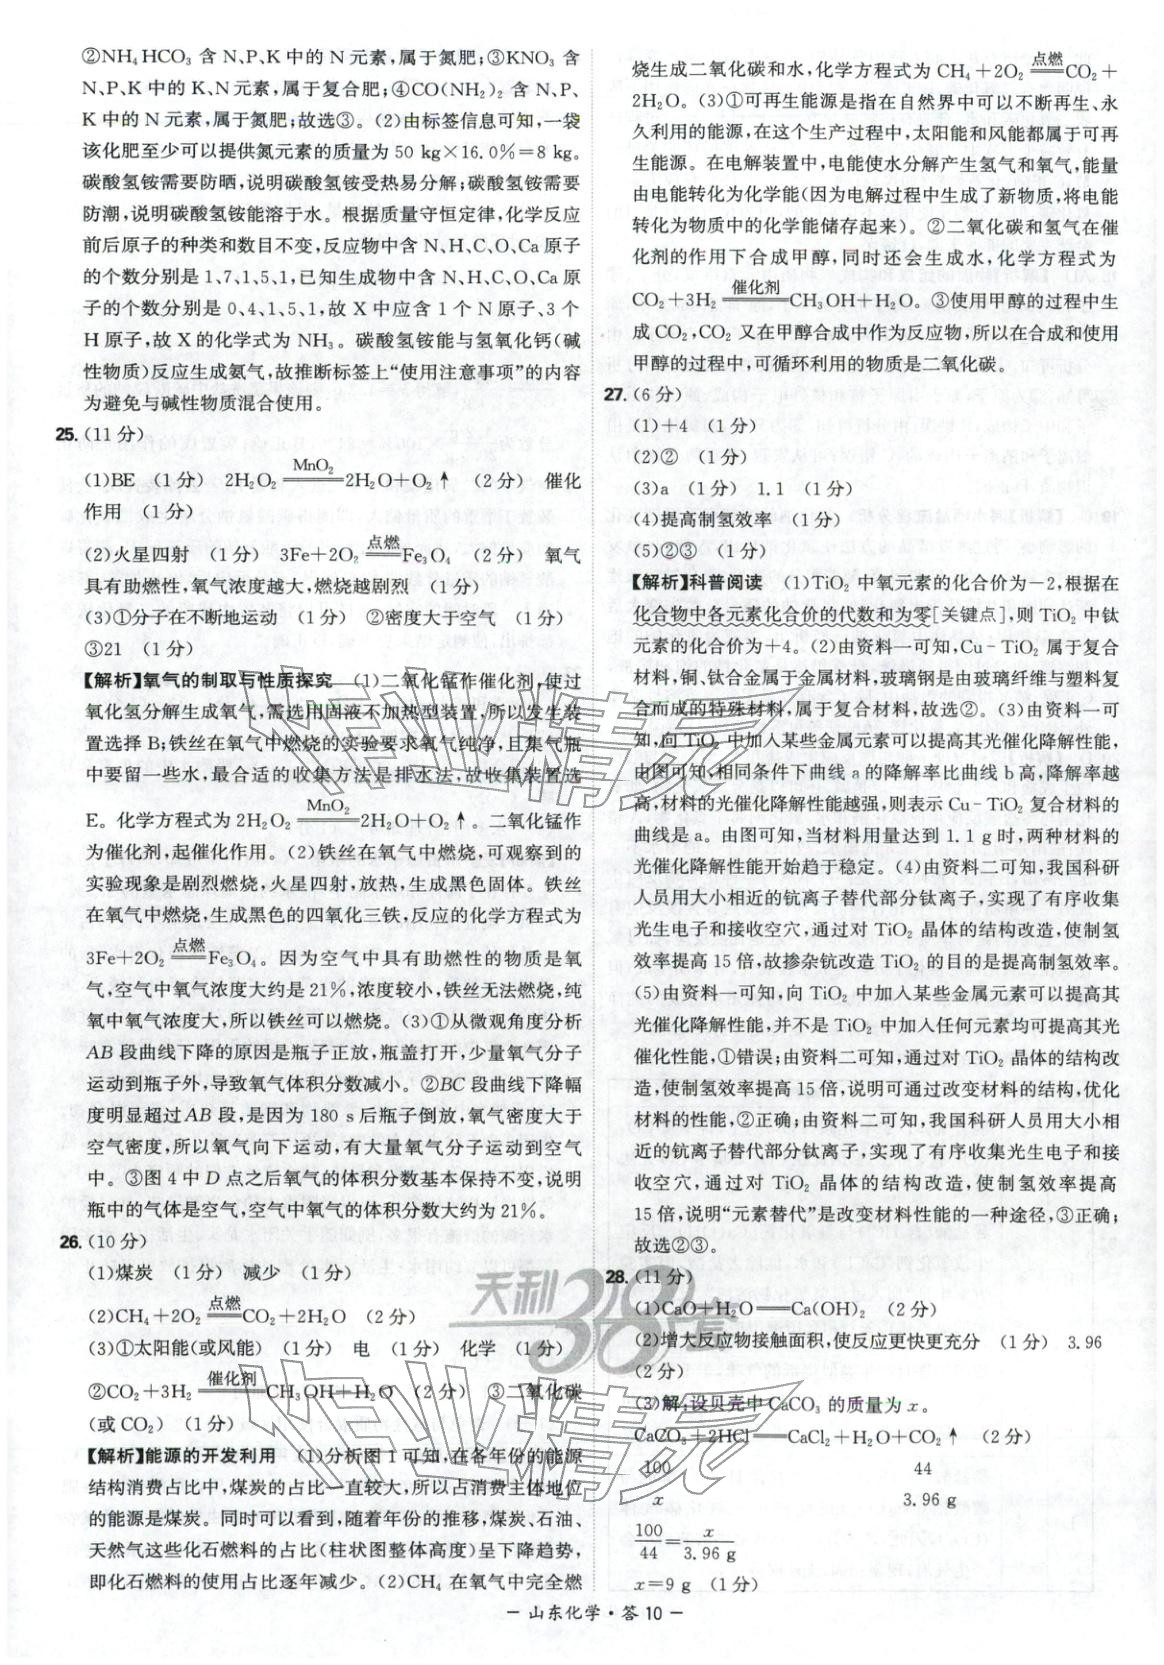 ②NH₄HCO₃ 含 N、P、K 中的 N 元素，属于氮肥；③KNO₃ 含
N、P、K 中的 K、N 元素，属于复合肥；④CO(NH₂)₂ 含 N、P、
K 中的 N 元素，属于氮肥；故选③。(2)由标签信息可知，一袋
该化肥至少可以提供氮元素的质量为 50 kg×16.0%＝8 kg。
碳酸氢铵需要防晒，说明碳酸氢铵受热易分解；碳酸氢铵需要
防潮，说明碳酸氢铵能溶于水。根据质量守恒定律，化学反应
前后原子的种类和数目不变，反应物中含 N、H、C、O、Ca 原子
的个数分别是 1、7、1、5、1，已知生成物中含 N、H、C、O、Ca 原
子的个数分别是 0、4、1、5、1，故 X 中应含 1 个 N 原子、3 个
H 原子，故 X 的化学式为 NH₃。碳酸氢铵能与氢氧化钙(碱
性物质)反应生成氨气，故推断标签上“使用注意事项”的内容
为避免与碱性物质混合使用。
25. (11 分)
(1)BE （1 分） 2H₂O₂ =MnO₂= 2H₂O＋O₂↑ （2 分） 催化
作用 （1 分）
(2)火星四射 （1 分） 3Fe＋2O₂ =点燃= Fe₃O₄ （2 分） 氧气
具有助燃性，氧气浓度越大，燃烧越剧烈 （1 分）
(3)①分子在不断地运动 （1 分） ②密度大于空气 （1 分）
③21 （1 分）
【解析】氧气的制取与性质探究 (1)二氧化锰作催化剂，使过
氧化氢分解生成氧气，需选用固液不加热型装置，所以发生装
置选择 B；铁丝在氧气中燃烧的实验要求氧气纯净，且集气瓶
中要留一些水，最合适的收集方法是排水法，故收集装置选
E。化学方程式为 2H₂O₂ =MnO₂= 2H₂O＋O₂↑。二氧化锰作
为催化剂，起催化作用。(2)铁丝在氧气中燃烧，可观察到的
实验现象是剧烈燃烧，火星四射，放热，生成黑色固体。铁丝
在氧气中燃烧，生成黑色的四氧化三铁，反应的化学方程式为
3Fe＋2O₂ =点燃= Fe₃O₄。因为空气中具有助燃性的物质是氧
气，空气中氧气浓度大约是 21%，浓度较小，铁丝无法燃烧，纯
氧中氧气浓度大，所以铁丝可以燃烧。(3)①从微观角度分析
AB 段曲线下降的原因是瓶子正放，瓶盖打开，少量氧气分子
运动到瓶子外，导致氧气体积分数减小。②BC 段曲线下降幅
度明显超过 AB 段，是因为 180 s 后瓶子倒放，氧气密度大于
空气密度，所以氧气向下运动，有大量氧气分子运动到空气
中。③图 4 中 D 点之后氧气的体积分数基本保持不变，说明
瓶中的气体是空气，空气中氧气的体积分数大约为 21%。
26. (10 分)
(1)煤炭 （1 分） 减少 （1 分）
(2)CH₄＋2O₂ =点燃= CO₂＋2H₂O （2 分）
(3)①太阳能(或风能) （1 分） 电 （1 分） 化学 （1 分）
②CO₂＋3H₂ =催化剂= CH₃OH＋H₂O （2 分） ③二氧化碳
(或 CO₂) （1 分）
【解析】能源的开发利用 (1)分析图 1 可知，在各年份的能源
结构消费占比中，煤炭的占比一直较大，所以占消费主体地位
的能源是煤炭。同时可以看到，随着年份的推移，煤炭、石油、
天然气这些化石燃料的占比(柱状图整体高度)呈下降趋势，
即化石燃料的使用占比逐年减少。(2)CH₄ 在氧气中完全燃
烧生成二氧化碳和水，化学方程式为 CH₄＋2O₂ =点燃= CO₂＋
2H₂O。(3)①可再生能源是指在自然界中可以不断再生、永
久利用的能源，在这个生产过程中，太阳能和风能都属于可再
生能源。在电解装置中，电能使水分解产生氢气和氧气，能量
由电能转化为化学能(因为电解过程中生成了新物质，将电能
转化为物质中的化学能储存起来)。②二氧化碳和氢气在催
化剂的作用下合成甲醇，同时还会生成水，化学方程式为
CO₂＋3H₂ =催化剂= CH₃OH＋H₂O。③使用甲醇的过程中生
成 CO₂，CO₂ 又在甲醇合成中作为反应物，所以在合成和使用
甲醇的过程中，可循环利用的物质是二氧化碳。
27. (6 分)
(1)＋4 （1 分）
(2)② （1 分）
(3)a （1 分） 1.1 （1 分）
(4)提高制氢效率 （1 分）
(5)②③ （1 分）
【解析】科普阅读 (1)TiO₂ 中氧元素的化合价为－2，根据在
化合物中各元素化合价的代数和为零[关键点]，则 TiO₂ 中钛
元素的化合价为＋4。(2)由资料一可知，Cu－TiO₂ 属于复合
材料，铜、钛合金属于金属材料，玻璃钢是由玻璃纤维与塑料复
合而成的特殊材料，属于复合材料，故选②。(3)由资料一可
知，向 TiO₂ 中加入某些金属元素可以提高其光催化降解性能，
由图可知，相同条件下曲线 a 的降解率比曲线 b 高，降解率越
高，材料的光催化降解性能越强，则表示 Cu－TiO₂ 复合材料的
曲线是 a。由图可知，当材料用量达到 1.1 g 时，两种材料的
光催化降解性能开始趋于稳定。(4)由资料二可知，我国科研
人员用大小相近的钪离子替代部分钛离子，实现了有序收集
光生电子和接收空穴，通过对 TiO₂ 晶体的结构改造，使制氢
效率提高 15 倍，故掺杂钪改造 TiO₂ 的目的是提高制氢效率。
(5)由资料一可知，向 TiO₂ 中加入某些金属元素可以提高其
光催化降解性能，并不是 TiO₂ 中加入任何元素均可提高其光
催化性能，①错误；由资料二可知，通过对 TiO₂ 晶体的结构改
造，使制氢效率提高 15 倍，说明可通过改变材料的结构，优化
材料的性能，②正确；由资料二可知，我国科研人员用大小相
近的钪离子替代部分钛离子，实现了有序收集光生电子和接
收空穴，通过对 TiO₂ 晶体的结构改造，使制氢效率提高
15 倍，说明“元素替代”是改变材料性能的一种途径，③正确；
故选②③。
28. (11 分)
(1)CaO＋H₂O══Ca(OH)₂ （2 分）
(2)增大反应物接触面积，使反应更快更充分 （1 分） 3.96
（2 分）
(3)解：设贝壳中 CaCO₃ 的质量为 x。
CaCO₃＋2HCl══CaCl₂＋H₂O＋CO₂↑ （2 分）
100 44
x 3.96 g
100/44＝x/3.96 g
x＝9 g （1 分）
－山东化学·答 10－
天利38套
作业精灵
作业精灵